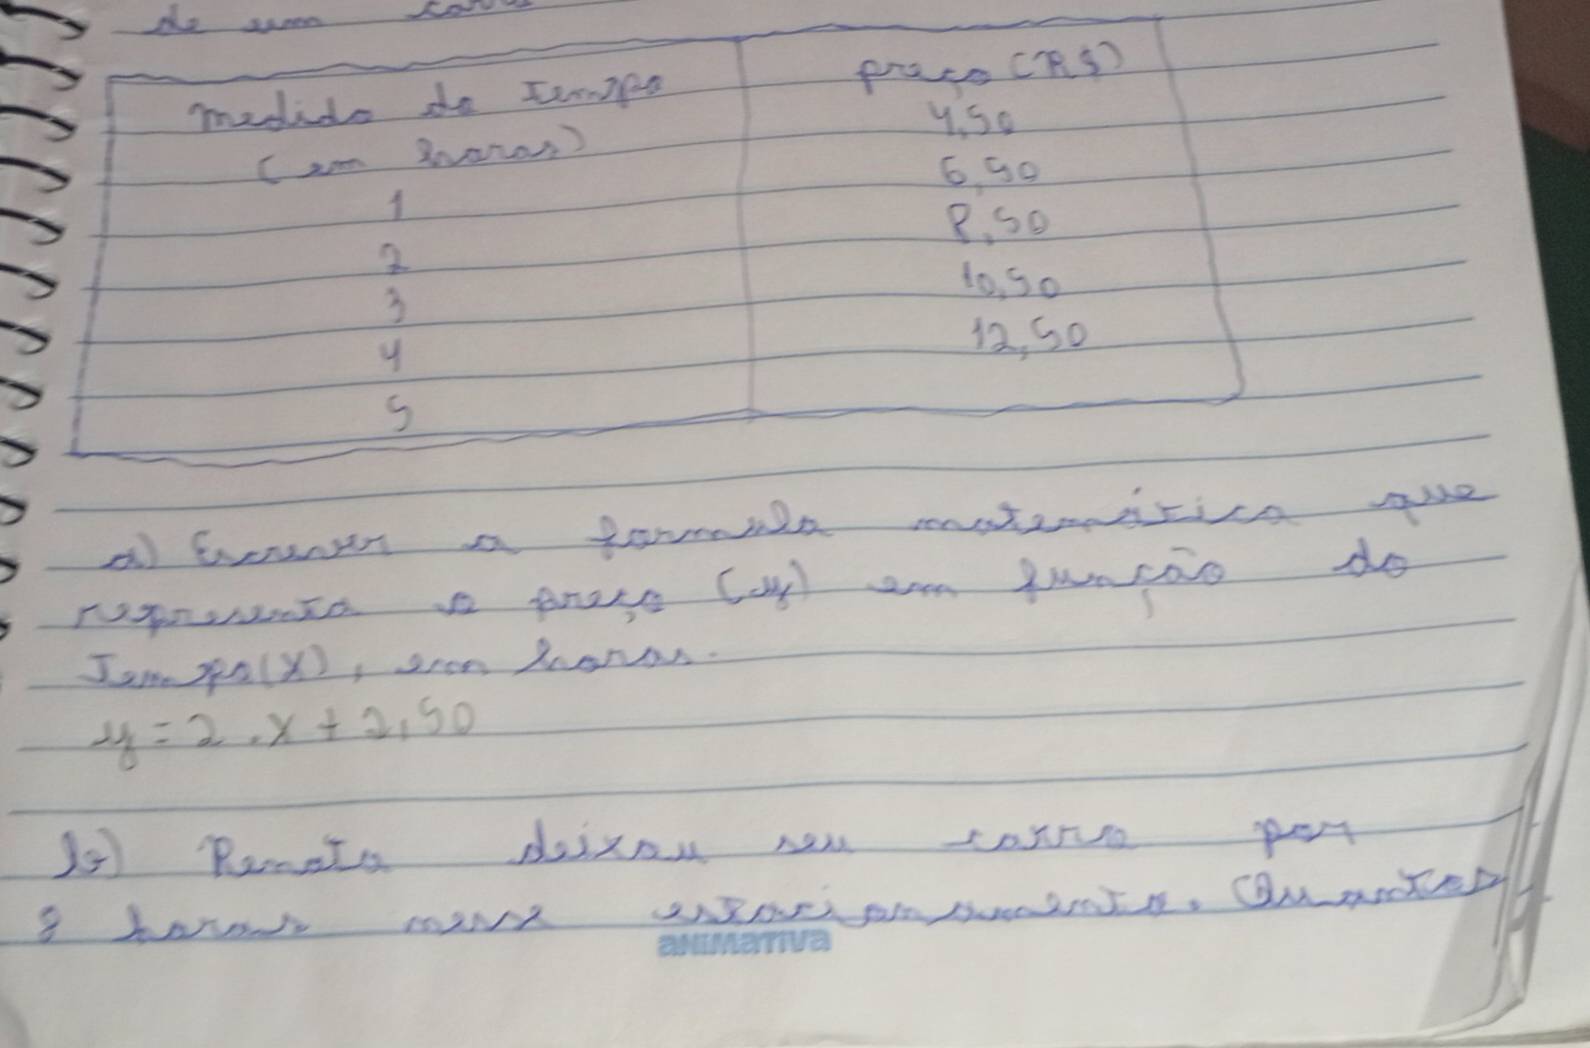 de um carro
medida do tempo
(em horas)
1
2
3
4
5
preço (R$)
4,50
6,50
8,50
10,50
12,50
a) Escrever a formula matemática que
representa o preço (y) em função do
Tempo(x), em horas.
y = 2 . x + 2,50
b) Renata deixou seu carro por
8 horas nesse estacionamento. Quantos
ANIMATIVA